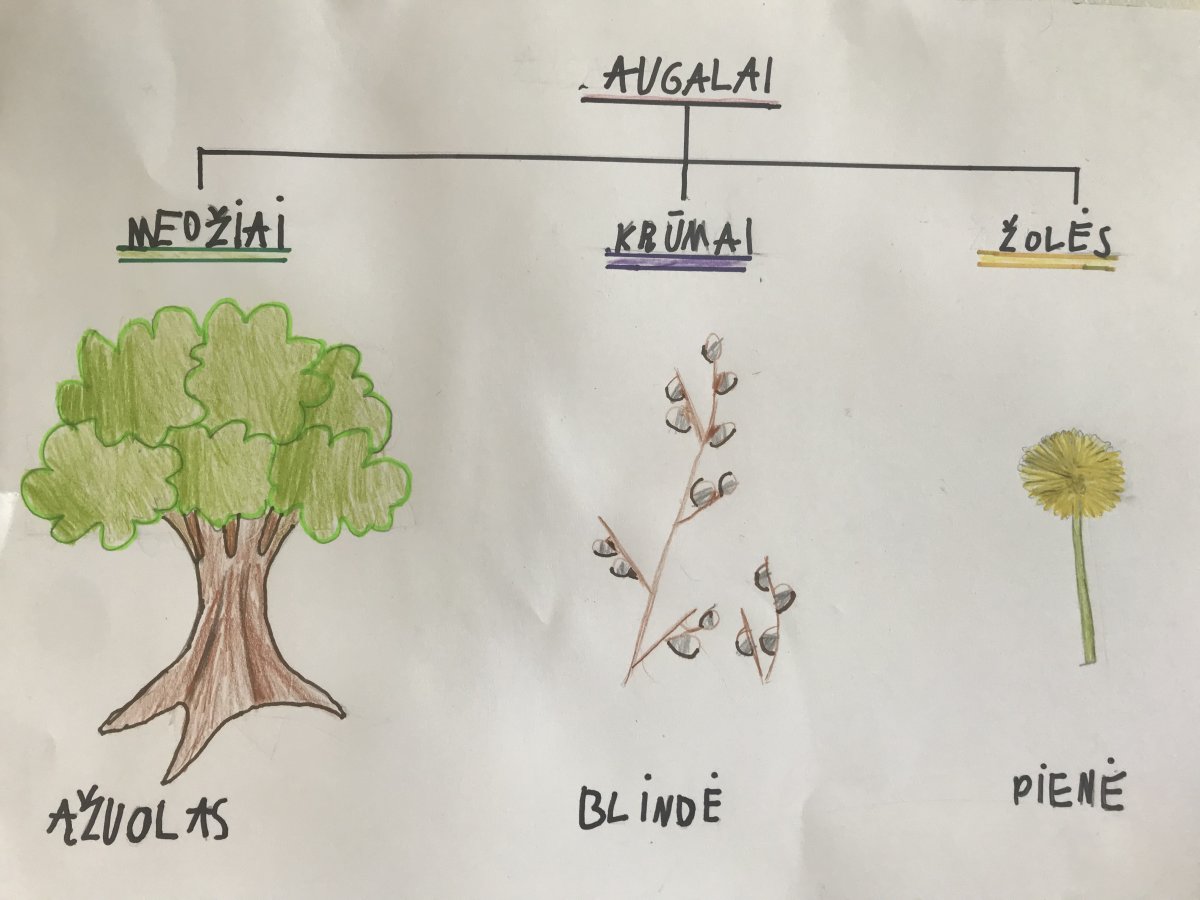 AUGALAI
MEDŽIAI
KRŪMAI
ŽOLĖS
ĄŽUOLAS
BLINDĖ
PIENĖ